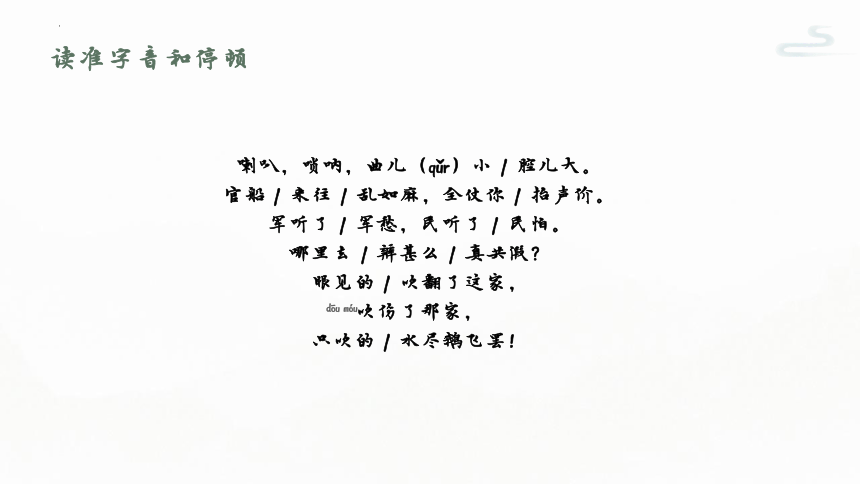 读准字音和停顿
喇叭，唢呐，曲儿（qǔr）小 / 腔儿大。
官船 / 来往 / 乱如麻，全仗你 / 抬声价。
军听了 / 军愁，民听了 / 民怕。
哪里去 / 辨甚么 / 真共假？
眼见的 / 吹翻了这家，
dōu móu吹伤了那家，
只吹的 / 水尽鹅飞罢！